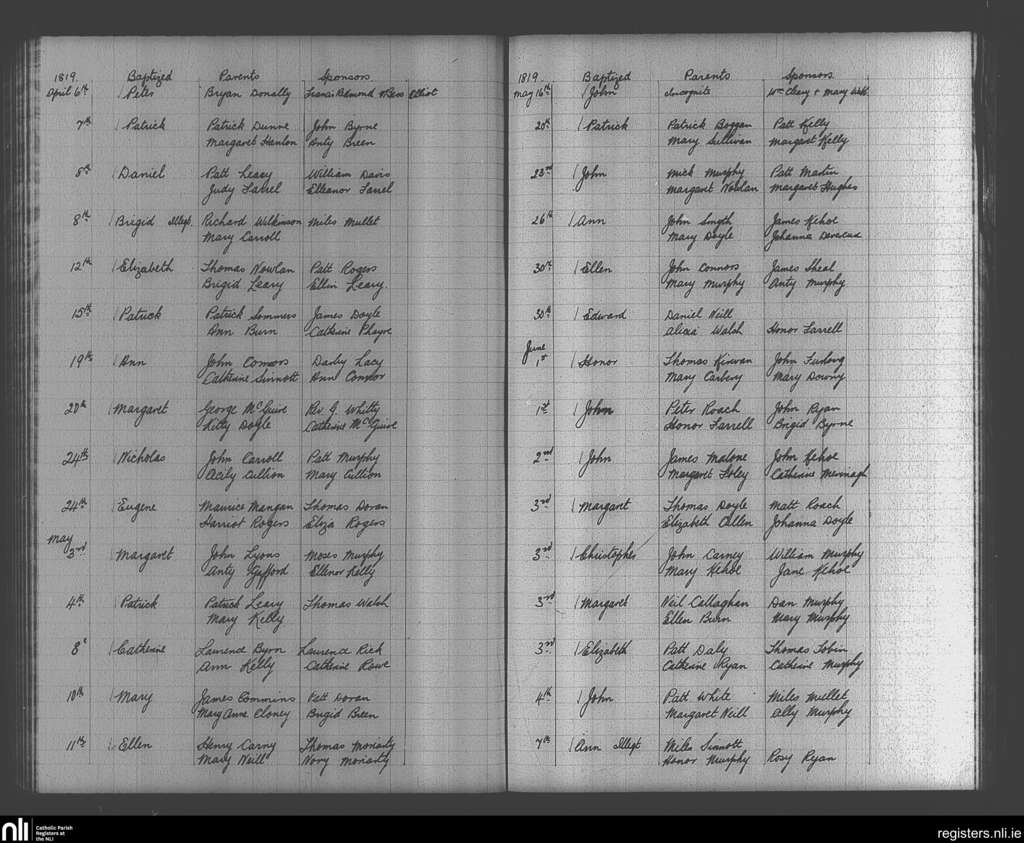 1819. Baptized Parents Sponsors
April 6th Peter Bryan Donally Francis Redmond Elliot
7th Patrick Patrick Dunne John Byrne
Margaret Hanlon Anty Breen
8th Daniel Patt Leary William Davis
Judy Farrel Elleanor Farrel
8th Brigid Illegt. Richard Wilkinson Miles Mullet
Mary Carroll
12th Elizabeth Thomas Nowlan Patt Rogers
Brigid Leary Ellin Leary.
15th Patrick Patrick Sommers James Doyle
Ann Burn Catherine Phayre
19th Ann John Connors Darby Lacy
Catherine Sinnott Ann Connor
20th Margaret George McGuire Rev J. Whitty
Kitty Doyle Catherine McGuire
24th Nicholas John Carroll Patt Murphy
Acily Cullion Mary Cullion
24th Eugene Maurice Mangan Thomas Doran
Harriot Rogers Eliza Rogers
May
3rd Margaret John Lyons Moses Murphy
Anty Stafford Ellenor Kelly
4th Patrick Patrick Leary Thomas Walsh
Mary Kelly
8 Catherine Laurence Byrn Laurence Rick
Ann Kelly Catherine Rowe
10th Mary James Commins Patt Doran
Mary Anne Cloney Brigid Breen
11th Ellen Henry Carny Thomas Moriarty
Mary Neill Nory Moriarty
1819 Baptized Parents Sponsors
May 16th John Incognito Wm Cleary + Mary Webb
20th Patrick Patrick Boggan Patt Kelly
Mary Sullivan Margaret Kelly
23rd John Mick Murphy Patt Martin
Margaret Nowlan Margaret Hughes
26th Ann John Smyth James Kehoe
Mary Doyle Johanna
30th Ellen John Connors James Sheal
Mary Murphy Anty Murphy
30th Edward Daniel Neill
Alicia Walsh Honor Farrell
June
1st Honor Thomas Kirwan John Furlong
Mary Carbery Mary Downy
1st John Peter Roach John Ryan
Honor Farrell Brigid Byrne
2nd John James Malone John Kehoe
Margaret Foley Catherine
3rd Margaret Thomas Doyle Matt Roach
Elizabeth Cullen Johanna Doyle
3rd Christopher John Carney William Murphy
Mary Kehoe Jane Kehoe
3rd Margaret Neil Callaghan Dan Murphy
Ellen Burn Mary Murphy
3rd Elizabeth Patt Daly Thomas Tobin
Catherine Ryan Catherine Murphy
4th John Patt White Miles Mullet
Margaret Neill Ally Murphy
7th Ann Illegt Miles Sinnott
Honor Murphy Rosy Ryan
nli Catholic Parish
Registers at
the NLI
registers.nli.ie